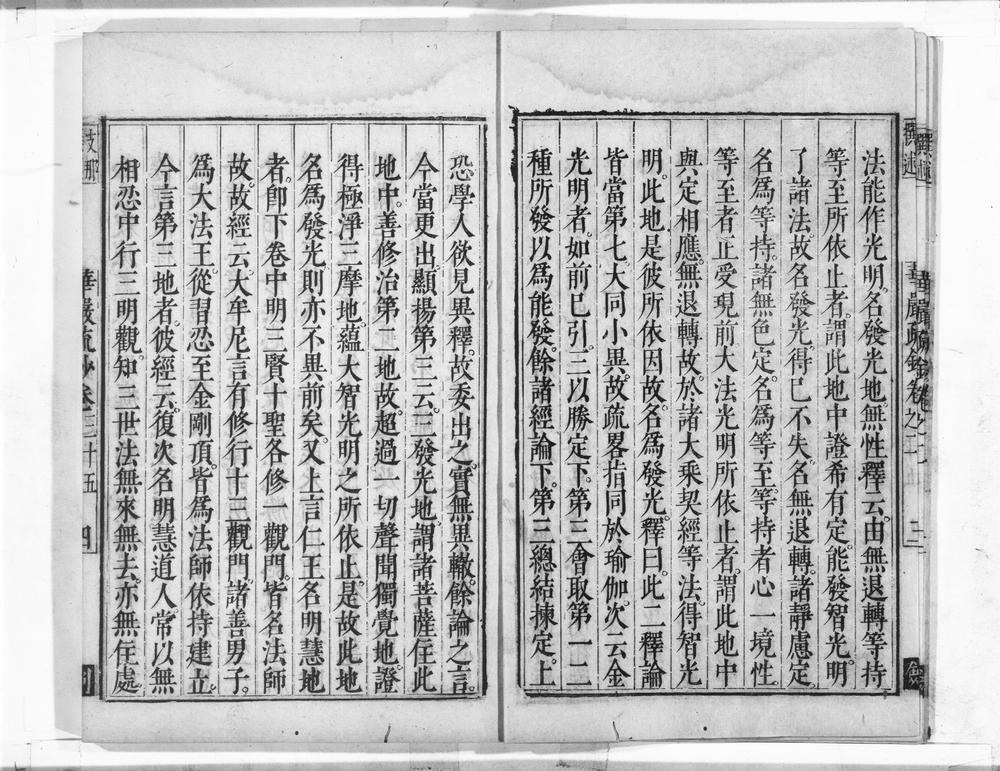 法能作光明。名發光地。無性釋云。由無退轉等持
等至所依止者。謂此地中證希有定。能發智光明。
了諸法。故名發光。得已不失。名無退轉。諸靜慮定
名為等持。諸無色定。名為等至。等持者心一境性。
等至者正受現前大法光明所依止者。謂此地中
與定相應。無退轉故。於諸大乘契經等法。得智光
明。此地是彼所依因故。名為發光。釋曰。此二釋論
皆當第七大同小異。故疏畧指同於瑜伽。次云金
光明者。如前已引。三以勝定下。第三會取第一二
種所發以為能發。餘諸經論下。第三總結揀定。上
恐學人欲見異釋。故委出之。實無異轍。餘論之言。
今當更出。顯揚第三云。三發光地。謂諸菩薩住此
地中。善修治第二地故。超過一切聲聞獨覺地。證
得極淨三摩地。蘊大智光明之所依止。是故此地
名為發光。則亦不異前矣。又上言仁王名明慧地
者。卽下卷中明三賢十聖各修一觀門。皆名法師
故。故經云。大牟尼言有修行十三觀門。諸善男子。
為大法王。從習忍至金剛頂。皆為法師依持建立。
今言第三地者。彼經云。復次名明慧道人。常以無
相忍中行三明觀。知三世法無來無去。亦無住處
支那
華嚴疏鈔卷三十五
四
撰述